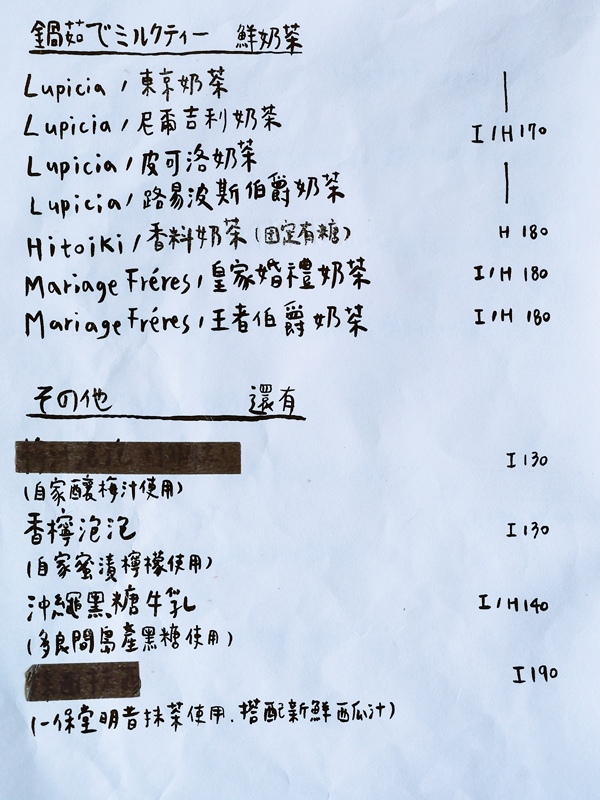 鍋茹でミルクティー 鮮奶茶
Lupicia / 東京奶茶
Lupicia / 尼爾吉利奶茶 I/H 170
Lupicia / 皮可洛奶茶
Lupicia / 路易波斯伯爵奶茶
Hitoiki / 香料奶茶 (固定有糖) H 180
Mariage Fréres / 皇家婚禮奶茶 I/H 180
Mariage Fréres / 王者伯爵奶茶 I/H 180
その他 還有
I 130
(自家釀梅汁使用)
香檸泡泡 I 130
(自家蜜漬檸檬使用)
沖繩黑糖牛乳 I/H 140
(多良間島產黑糖使用)
I 190
(一保堂明昔抹茶使用.搭配新鮮西瓜汁)